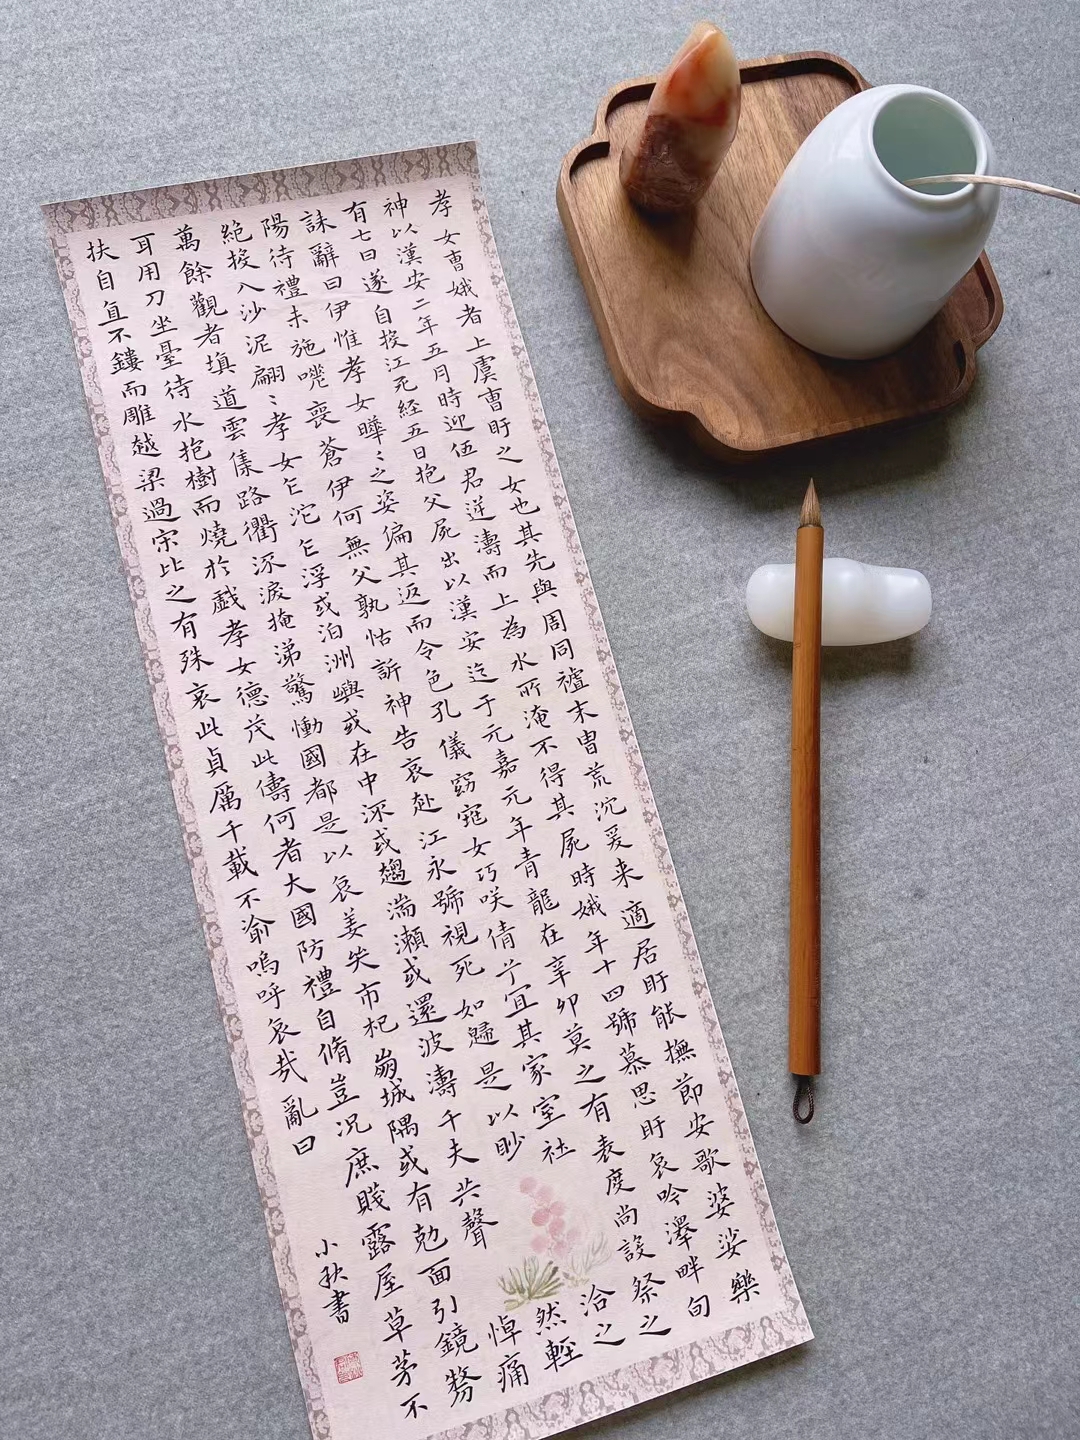 孝女曹娥者上虞曹盱之女也其先與周同祖末冑荒沉爰来適居盱能撫節安歌婆娑樂
神以漢安二年五月時迎伍君逆濤而上為水所淹不得其屍時娥年十四號慕思盱哀吟澤畔旬
有七日遂自投江死経五日抱父屍出以漢安迄于元嘉元年青龍在辛卯莫之有表度尚設祭之
誄辭曰伊惟孝女曄〻之姿偏其返而令色孔儀窈窕女巧咲倩兮宜其家室在洽之
陽待禮未施嗟喪蒼伊何無父孰怙訴神告哀赴江永號視死如歸是以眇然輕
絕投入沙泥翩〻孝女乍沉乍浮或泊洲嶼或在中流或趨湍瀨或還波濤千夫共聲悼痛
萬餘觀者填道雲集路衢流淚掩涕驚慟國都是以哀姜哭市杞崩城隅或有尅面引鏡剺
耳用刀坐臺待水抱樹而燒於戲孝女德茂此儔何者大國防禮自脩豈况庶賤露屋草茅不
扶自直不鏤而雕越梁過宋比之有殊哀此貞厲千載不渝嗚呼哀哉亂曰
小秋書